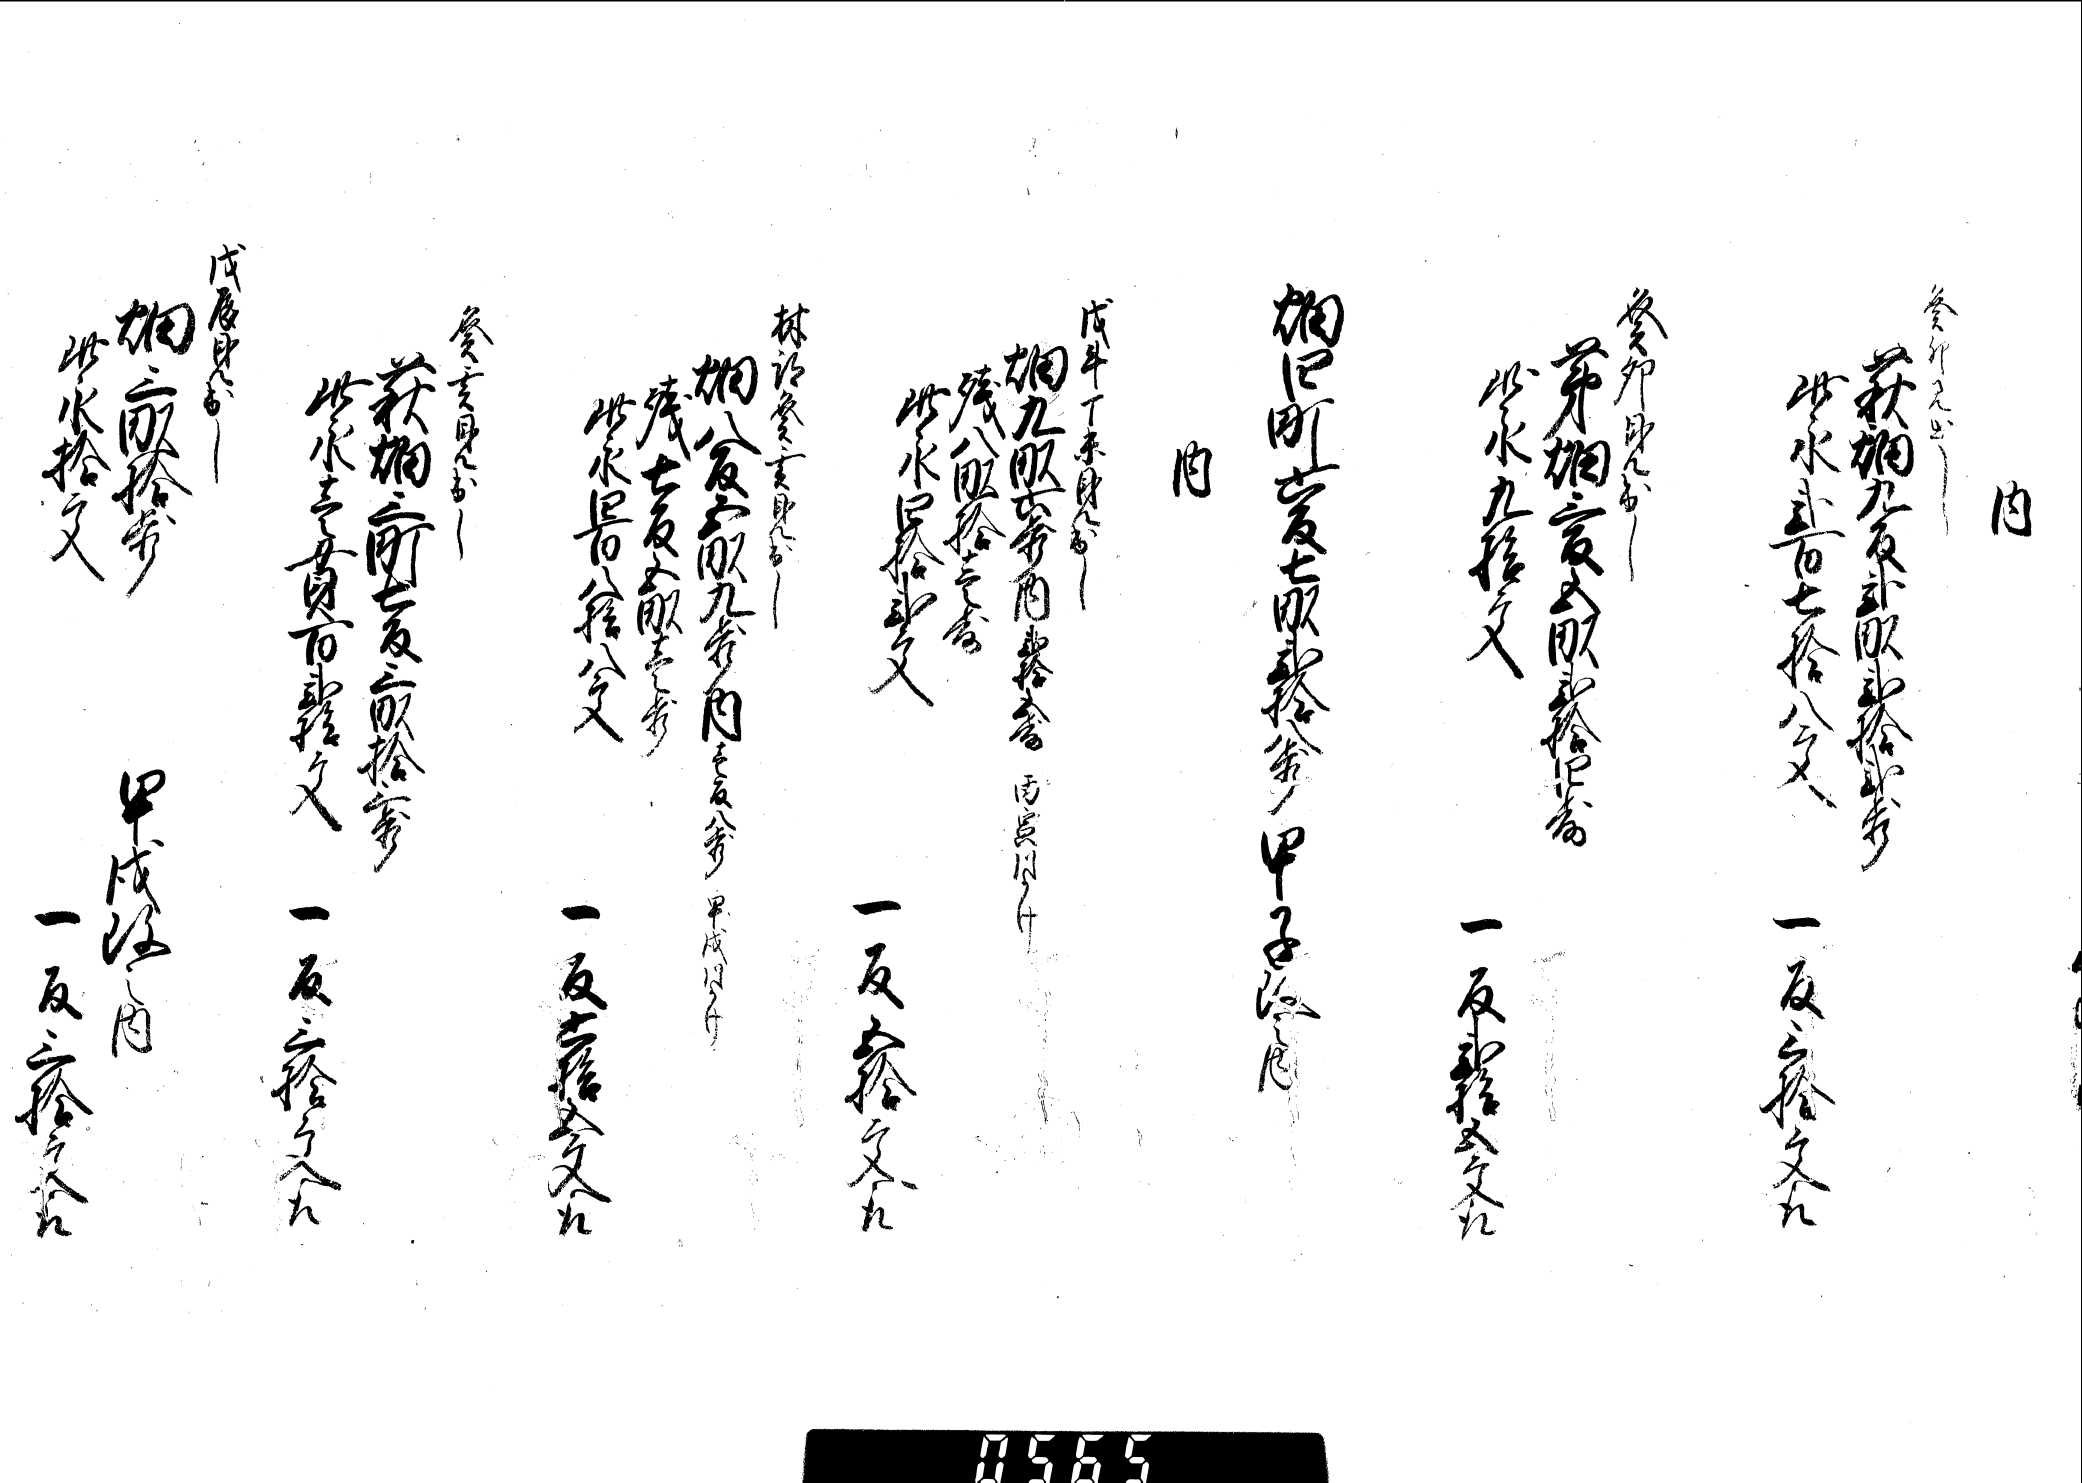 内
癸卯見出し
萩畑九反弐畝弐拾弐歩
此永弐百七拾八文 一反三拾文取
癸卯見出し
茅畑三反五畝弐拾四歩
此永九拾文 一反弐拾五文取
畑四町六反七畝弐拾八歩 甲子改之内
内
戊午丁未見出し
畑九畝六歩内弐拾五歩 丙寅川かけ
残八畝拾壱歩
此永四拾弐文 一反五拾文取
林 癸亥見出し
畑八反五畝九歩内壱反八歩 甲戌川かけ
残七反五畝壱歩
此永四百八拾八文 一反六拾五文取
癸亥見出し
萩畑三町七反三畝拾三歩
此永壱貫百弐拾文 一反三拾文取
戊辰見出し
畑三畝拾歩 甲戌改之内
此永拾文 一反三拾文取
0565